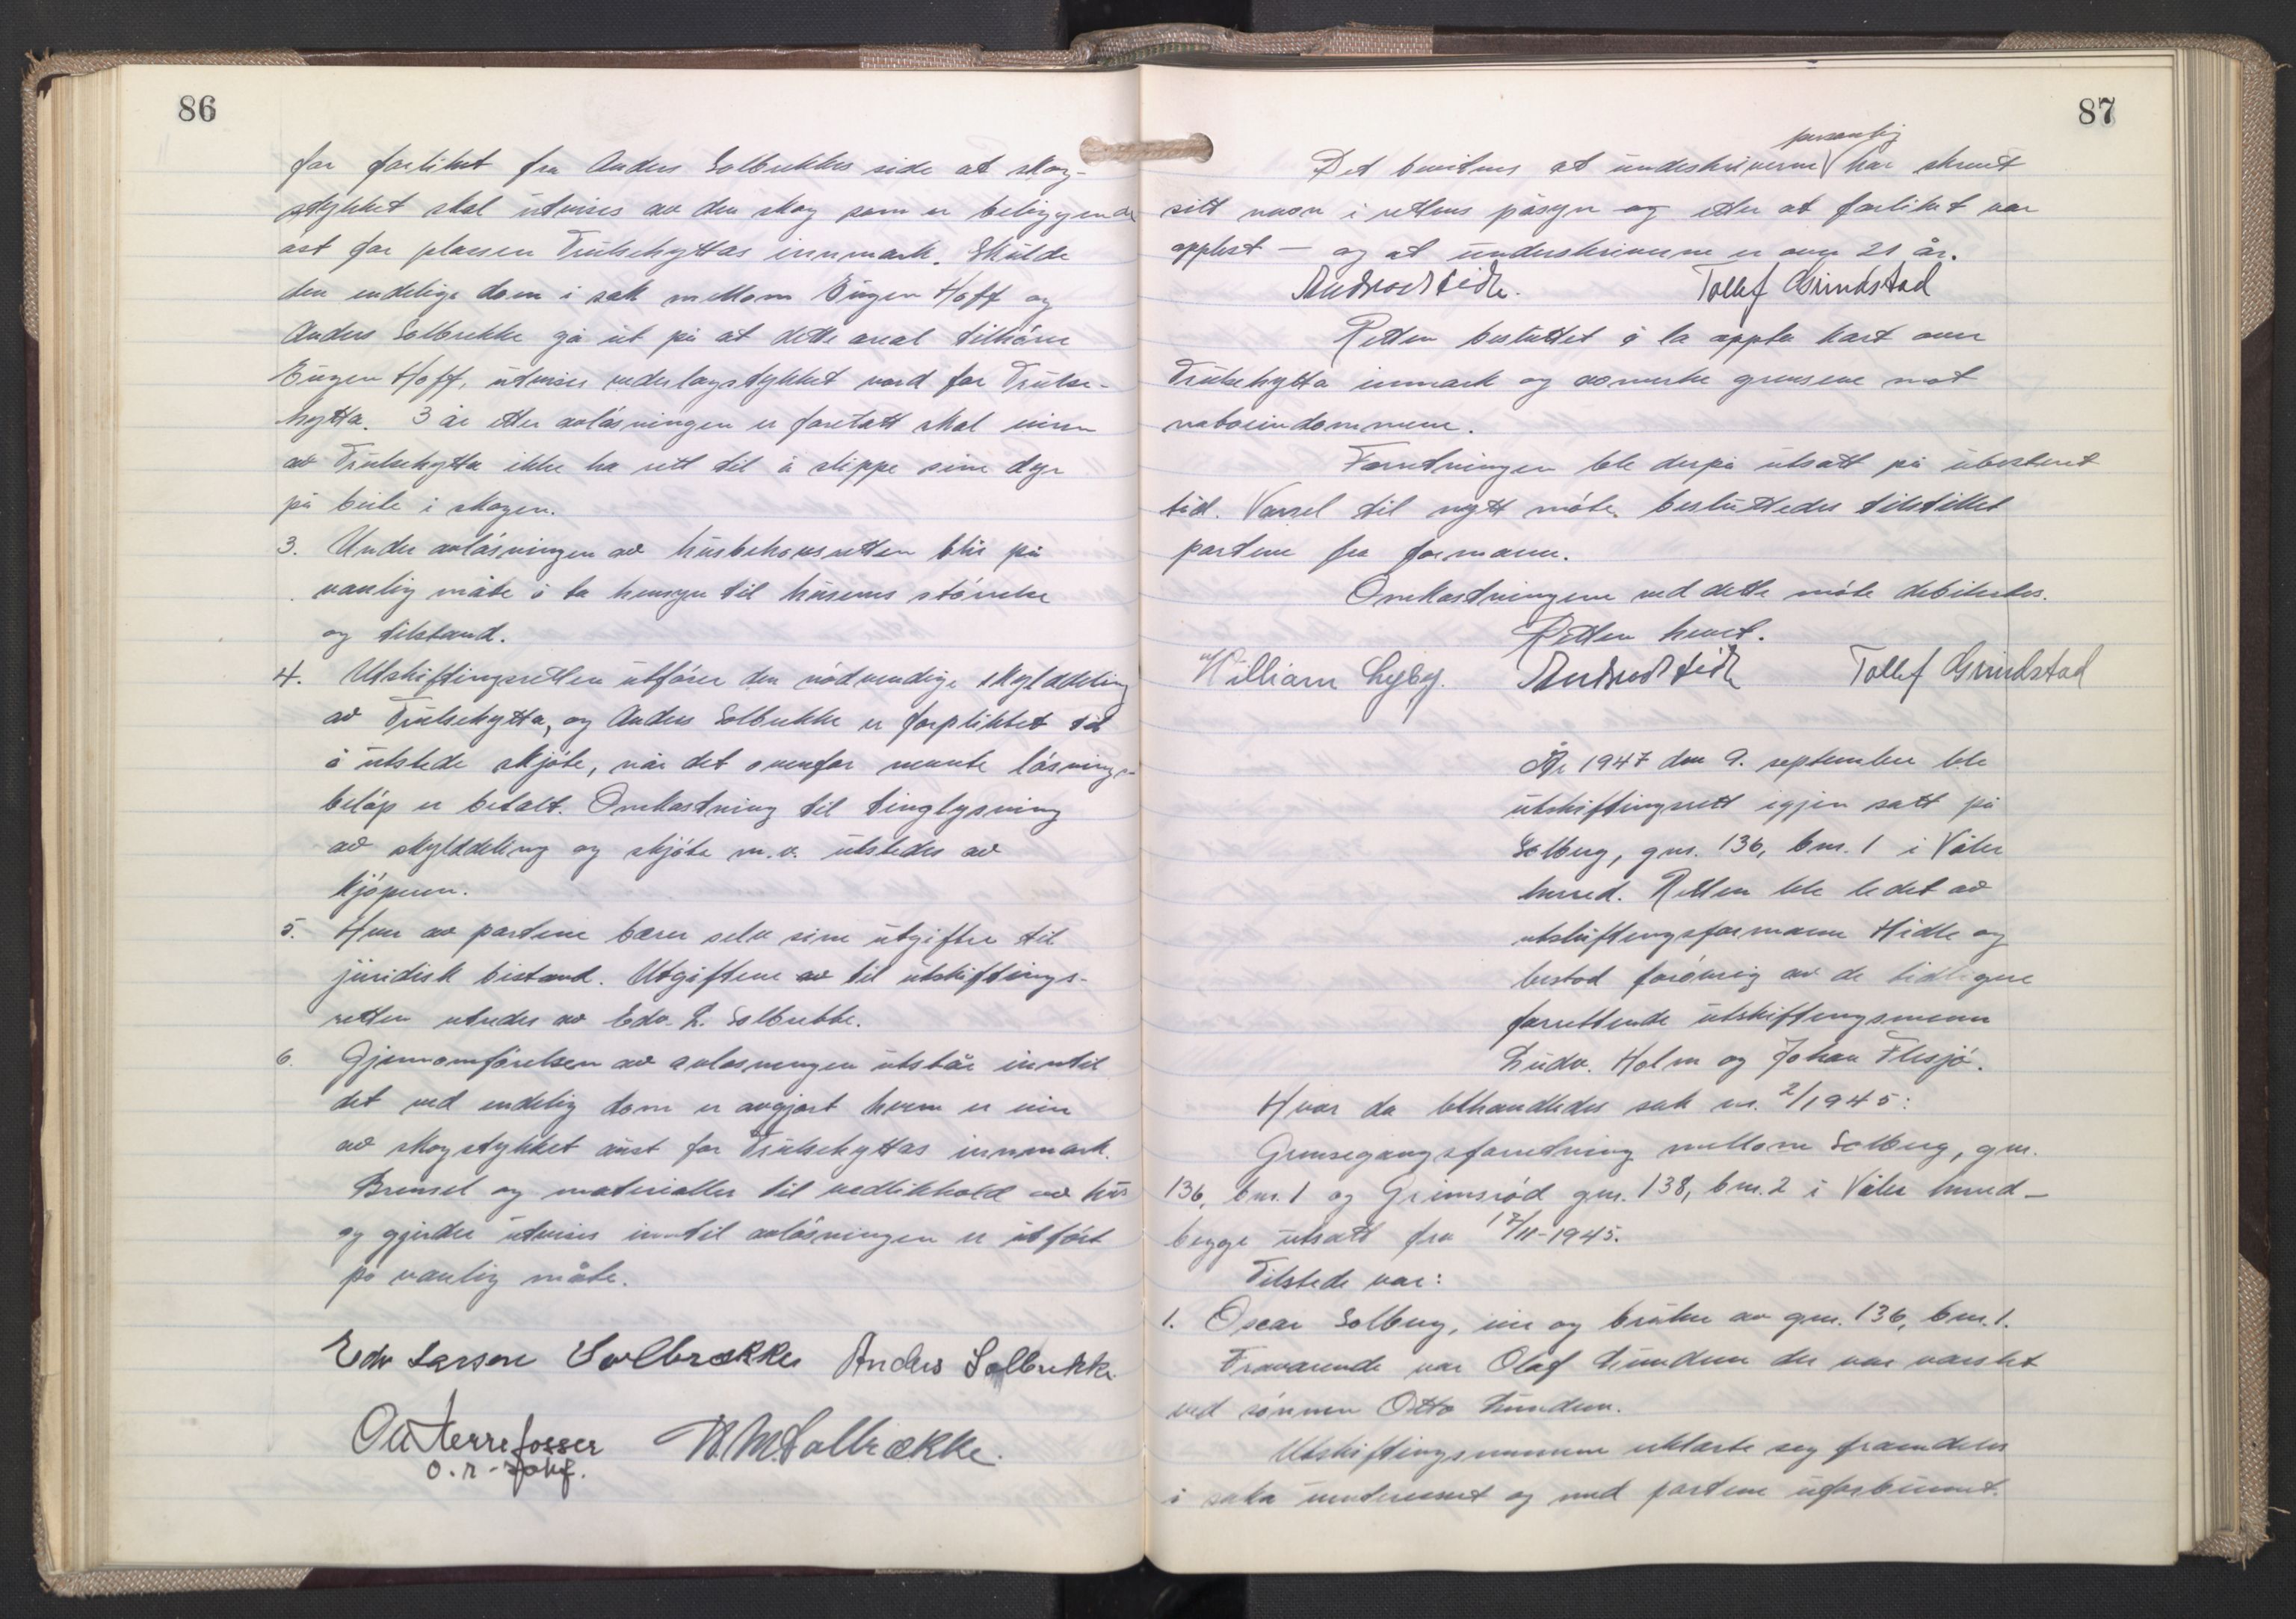 86
for forliket fra Anders Solbrekkes side at skog-
stykket skal utvises av den skog som er beliggende
øst for plassen Trulsehyttas innmark. Skulde
den endelige dom i sak mellom Eugen Hoff og
Anders Solbrekke gå ut på at dette areal tilhører
Eugen Hoff, utvises vederlagstykket nord for Trulse-
hytta. 3 år etter avløsningen er foretatt skal eieren
av Trulsehytta ikke ha rett til å slippe sine dyr
på beite i skogen.
3. Under avløsningen av husbehovsretten blir på
vanlig måte å ta hensyn til husenes størrelse
og tilstand.
4. Utskiftingsretten utfører den nødvendige skylddeling
av Trulsehytta, og Anders Solbrekke er forpliktet til
å utstede skjøte, når det ovenfor nevnte løsnings-
beløp er betalt. Omkostning til tinglysning
av skylddeling og skjøte m.v. utstedes av
kjøperen.
5. Hver av partene bærer selv sine utgifter til
juridisk bistand. Utgiftene av til utskiftings-
retten utredes av Edv. L. Solbrekke.
6. Gjennomførelsen av avløsningen utstår inntil
det ved endelig dom er avgjort hvem er eier
av skogstykket aust for Trulsehyttas innmark.
Brensel og materialler til vedlikhold av hus
og gjerder utvises inntil avløsningen er utført
på vanlig måte.
Edv Larsen Solbrække Anders Solbrekke
Ott Herrefosser N. M. Solbrække.
o.r-sakf.
87
personlig
Det bevitnes at underskriverne har skrevet
sitt navn i rettens påsyn og etter at forliket var
opplest — og at underskriverne er over 21 år.
Andreas Hidle. Tollef Grindstad
Retten besluttet å la oppta kart over
Trulsehytta innmark og avmerke grensene mot
naboeiendommene.
Forretningen ble derpå utsatt på ubestemt
tid. Varsel til nytt møte besluttedes tilstillet
partene fra formann.
Omkostningene ved dette møte debiteres.
Retten hevet.
William Lyby. Andreas Hidle Tollef Grindstad
År 1947 den 9. september ble
utskiftingsrett igjen satt på
Solberg, gnr. 136, bnr. 1 i Våler
herred. Retten ble ledet av
utskiftingsformann Hidle og
bestod forøvrig av de tidligere
forrettende utskiftingsmenn
Ludv. Holm og Johan Flesjø.
Hvor da behandledes sak nr. 2/1945:
Grensegangsforretning mellom Solberg, gnr.
136, bnr. 1 og Grimsrød gnr. 138, bnr. 2 i Våler herred –
begge utsatt fra 17/11-1945.
Tilstede var:
1. Oscar Solberg, eier og bruker av gnr. 136, bnr. 1.
Fraværende var Olaf Lunden der var varslet
ved sønnen Otto Lunden.
Utskiftingsmennene erklærte seg fremdeles
i saka uinteressert og med partene uforbundet.